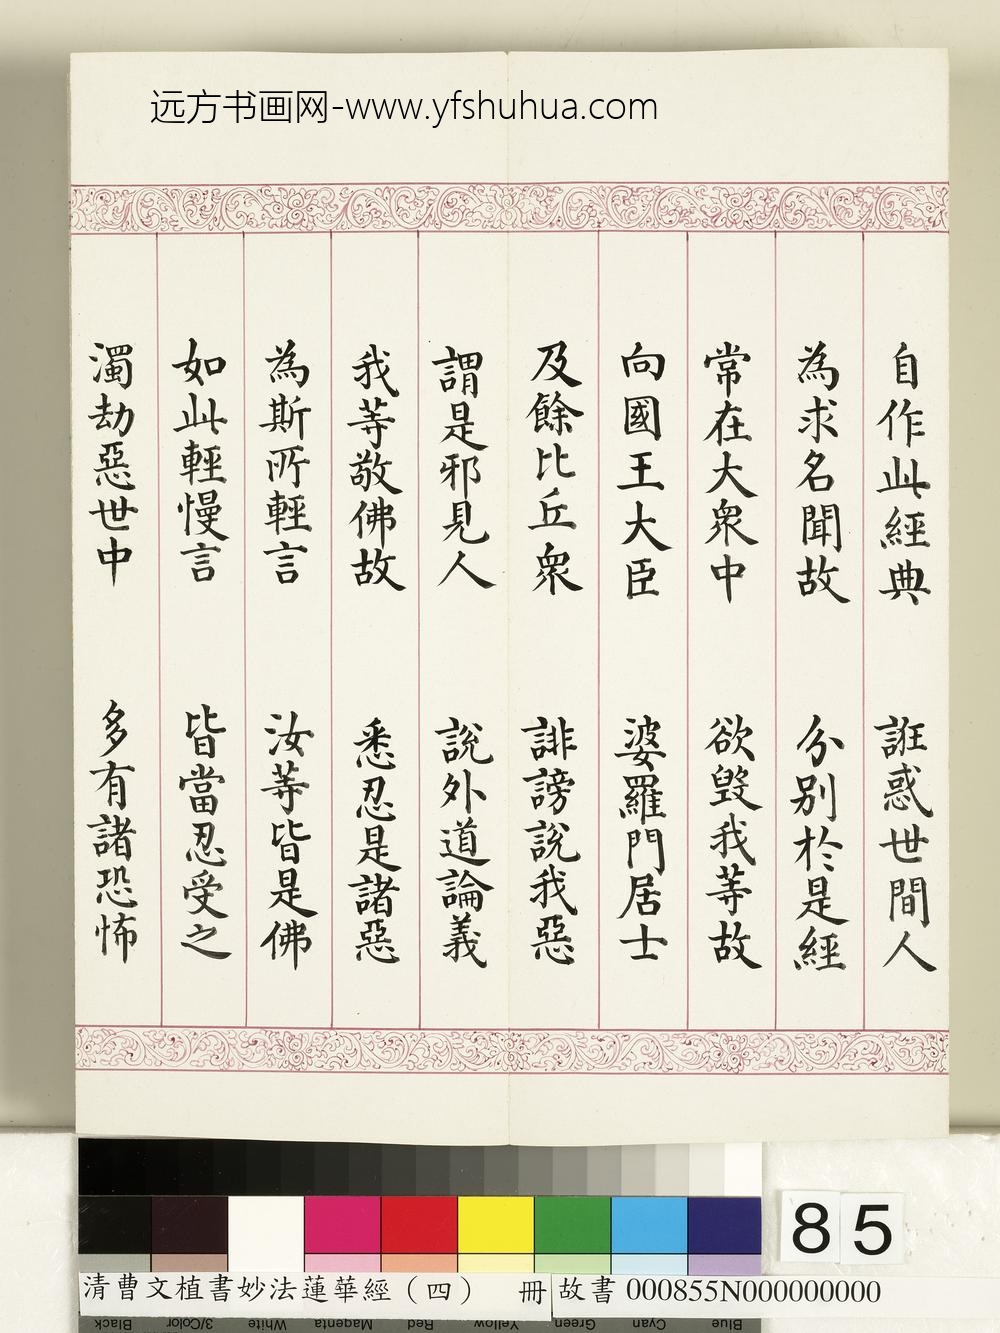 远方书画网-www.yfshuhua.com
自作此經典 誑惑世間人
為求名聞故 分別於是經
常在大衆中 欲毀我等故
向國王大臣 婆羅門居士
及餘比丘衆 誹謗說我惡
謂是邪見人 說外道論義
我等敬佛故 悉忍是諸惡
為斯所輕言 汝等皆是佛
如此輕慢言 皆當忍受之
濁劫惡世中 多有諸恐怖
85
清曹文植書妙法蓮華經(四) 冊
故書 000855N000000000
Black 3/Color White Magenta Red Yellow Green Cyan Blue